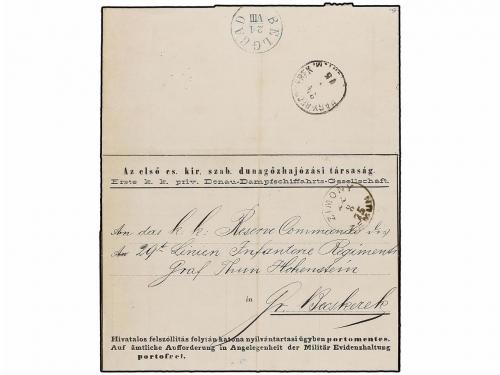 BELGRAD
24
VIII
Az első cs. kir. szab. dunagőzhajózási társaság.
Erste k. k. priv. Donau-Dampfschiffahrts-Gesellschaft.
ZIMONY
SEMLIN
An das k. k. Reserve Commando des
29t Linien Infanterie Regiments
Graf Thun Hohenstein
in
Gr. Becskerek
Hivatalos felszólítás folytán katona nyilvántartasi ügyben portomentes.
Auf ämtliche Aufforderung in Angelegenheit der Militär Evidenzhaltung
portofrei.